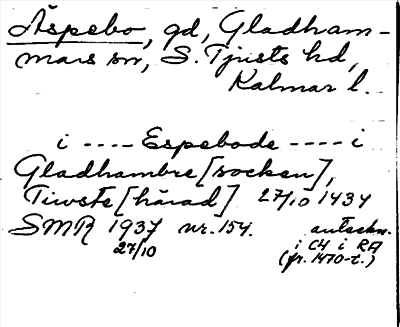 Äspebo, gd, Gladham-
mars sn, S. Tjusts hd,
Kalmar l.
i ---- Espebode ---- i
Gladhambre [socken],
Tiwste [härad] 27/10 1437
SMR 1937 nr. 154. anteckn.
27/10 i C4 i RA
(fr. 1470-t.)